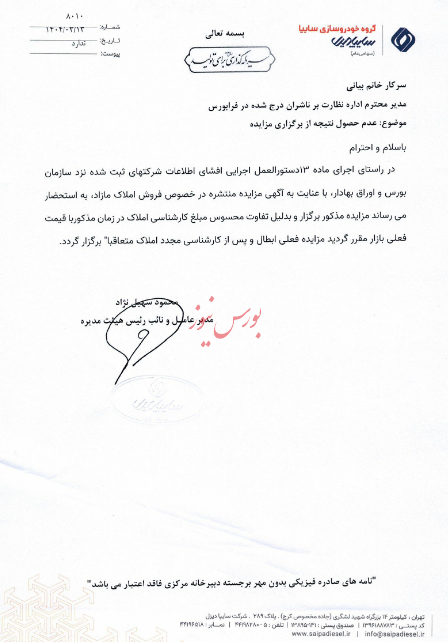 گروه خودروسازی سایپا
سایپا دیزل
(سهامی عام)
بسمه تعالی
سرمایه گذاری برای تولید
شماره: ۸۰۱۰
تاریخ: ۱۴۰۴/۰۳/۱۳
پیوست: ندارد
سرکار خانم بیاتی
مدیر محترم اداره نظارت بر ناشران درج شده در فرابورس
موضوع: عدم حصول نتیجه از برگزاری مزایده
باسلام و احترام
در راستای اجرای ماده ۱۳دستورالعمل اجرایی افشای اطلاعات شرکتهای ثبت شده نزد سازمان
بورس و اوراق بهادار، با عنایت به آگهی مزایده منتشره در خصوص فروش املاک مازاد، به استحضار
می رساند مزایده مذکور برگزار و بدلیل تفاوت محسوس مبلغ کارشناسی املاک در زمان مذکور با قیمت
فعلی بازار مقرر گردید مزایده فعلی ابطال و پس از کارشناسی مجدد املاک متعاقبا" برگزار گردد.
محمود سهیل نژاد
مدیر عامل و نائب رئیس هیئت مدیره
بورس نیوز
"نامه های صادره فیزیکی بدون مهر برجسته دبیرخانه مرکزی فاقد اعتبار می باشد"
تهران، کیلومتر ۱۴ بزرگراه شهید لشگری (جاده مخصوص کرج)، پلاک ۲۸۹، شرکت سایپا دیزل
www.saipadiesel.ir | info@saipadiesel.ir